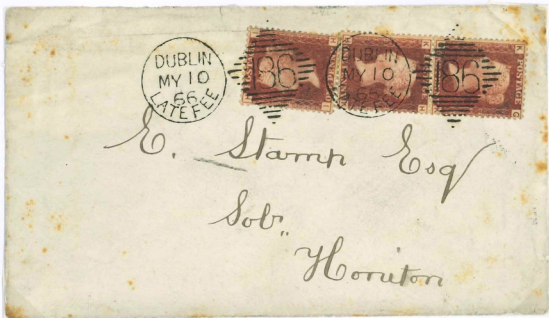 DUBLIN
MY 10
66
LATE FEE
86
DUBLIN
MY 10
66
LATE FEE
86
POSTAGE
K
G
E. Stamp Esq
Sobr.
Honiton